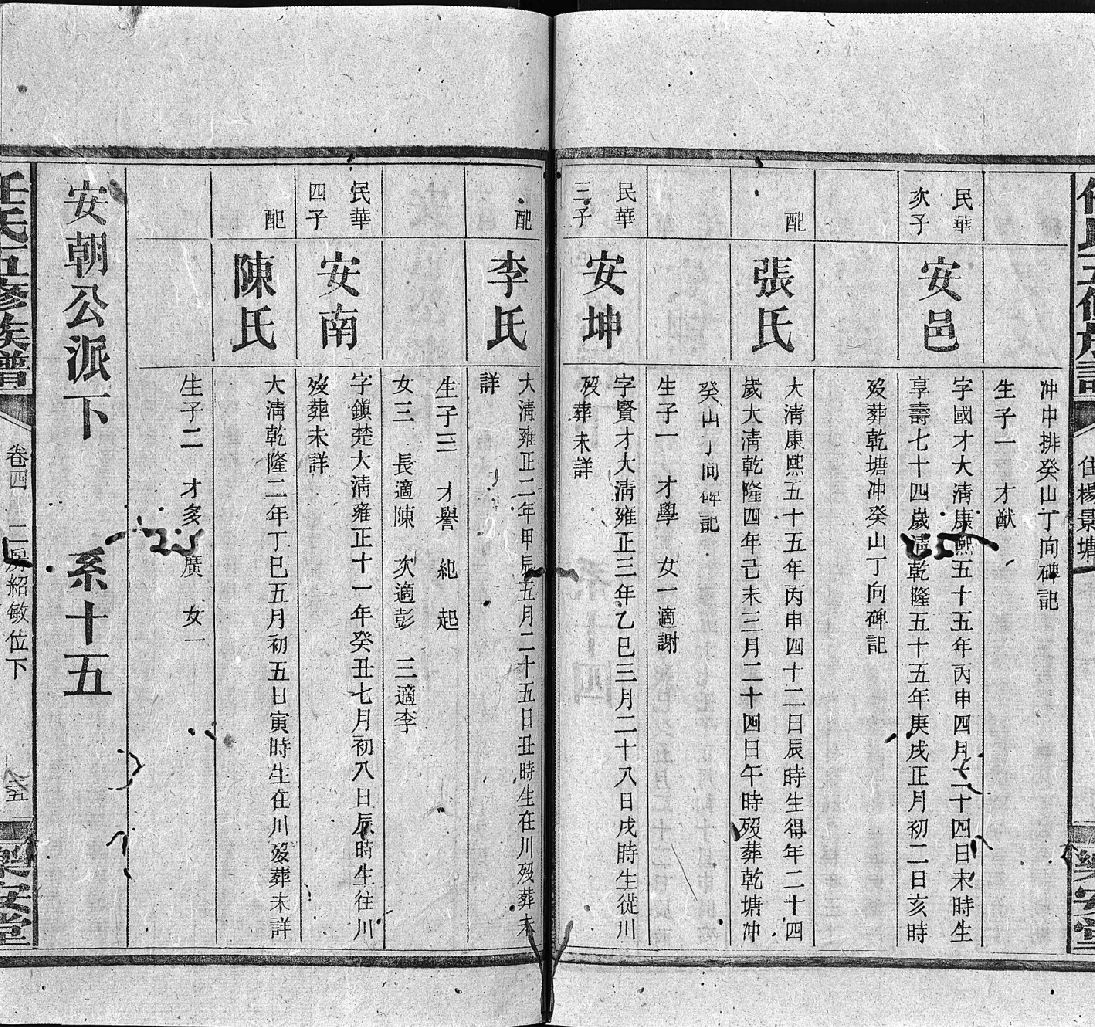 冲中排癸山丁向碑記
生子一 才猷
民華
次子
安邑
字國才大清康熙五十五年丙申四月二十四日未時生
享壽七十四歲清乾隆五十五年庚戌正月初二日亥時
歿葬乾塘冲癸山丁向碑記
配
張氏
大清康熙五十五年丙申四十二日辰時生得年二十四
歲大清乾隆四年己未三月二十四日午時歿葬乾塘冲
癸山丁向碑記
生子一 才學 女一適謝
民華
三子
安坤
字賢才大清雍正三年乙巳三月二十八日戌時生從川
歿葬未詳
配
李氏
大清雍正二年甲辰五月二十五日丑時生在川歿葬未
詳
生子三 才譽 紀 起
女三 長適陳 次適彭 三適李
民華
四子
安南
字鎮楚大清雍正十一年癸丑七月初八日辰時生往川
歿葬未詳
配
陳氏
大清乾隆二年丁巳五月初五日寅時生在川歿葬未詳
生子二 才多 廣 女一
安朝公派下 系十五
任氏五修族譜
卷四 二房紹敏位下
樂安堂